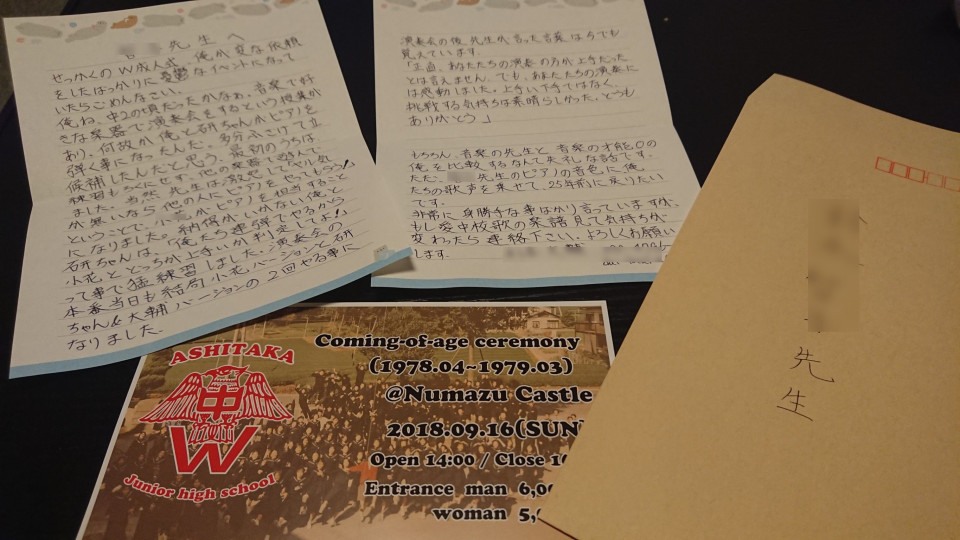 先生へ
せっかくのW成人式、俺が変な依頼
をしたばっかりに憂鬱なイベントになって
いたらごめんなさい。
俺ね、中2の頃だったかなぁ、音楽で好
きな楽器で演奏会をするという授業が
あり、何故か俺と研ちゃんがピアノを
弾く事になったんだ。多分ふざけて立
候補したんだと思う。最初のうちは
練習もろくにせず他の楽器で遊んで
ました。当然、先生は激怒して、やる気
が無いなら他の人にピアノをやってもらう!
ということで、小花がピアノを担当すること
になりました。納得がいかない俺と
研ちゃんは、「俺たち連弾でやるから
小花とどっちが上手いか判定してよ!」
って事で猛練習しました。演奏会の
本番当日も結局小花バージョンと研
ちゃん&大輔バージョンの2回やる事に
なりました。
演奏会の後、先生が言った言葉は今でも
覚えています。
「正直、あなたたちの演奏の方が上手だった
とは言えません。でも、あなたたちの演奏に
は感動しました。上手い下手ではなく、
挑戦する気持ちは素晴らしかった。どうも
ありがとう」
もちろん、音楽の先生と音楽の才能0の
俺を比較するなんて失礼な話です。
ただ、先生のピアノの音色に俺
たちの歌声を乗せて、25年前に戻りたい
です。
非常に身勝手な事ばかり言っていますが、
もし愛中校歌の楽譜見て気持ちが
変わったら連絡下さい。よろしくお願い
します。
先生
ASHITAKA
中
W
Junior high school
Coming-of-age ceremony
(1978.04~1979.03)
@Numazu Castle
2018.09.16(SUN)
Open 14:00 / Close
Entrance man 6,0
woman 5,